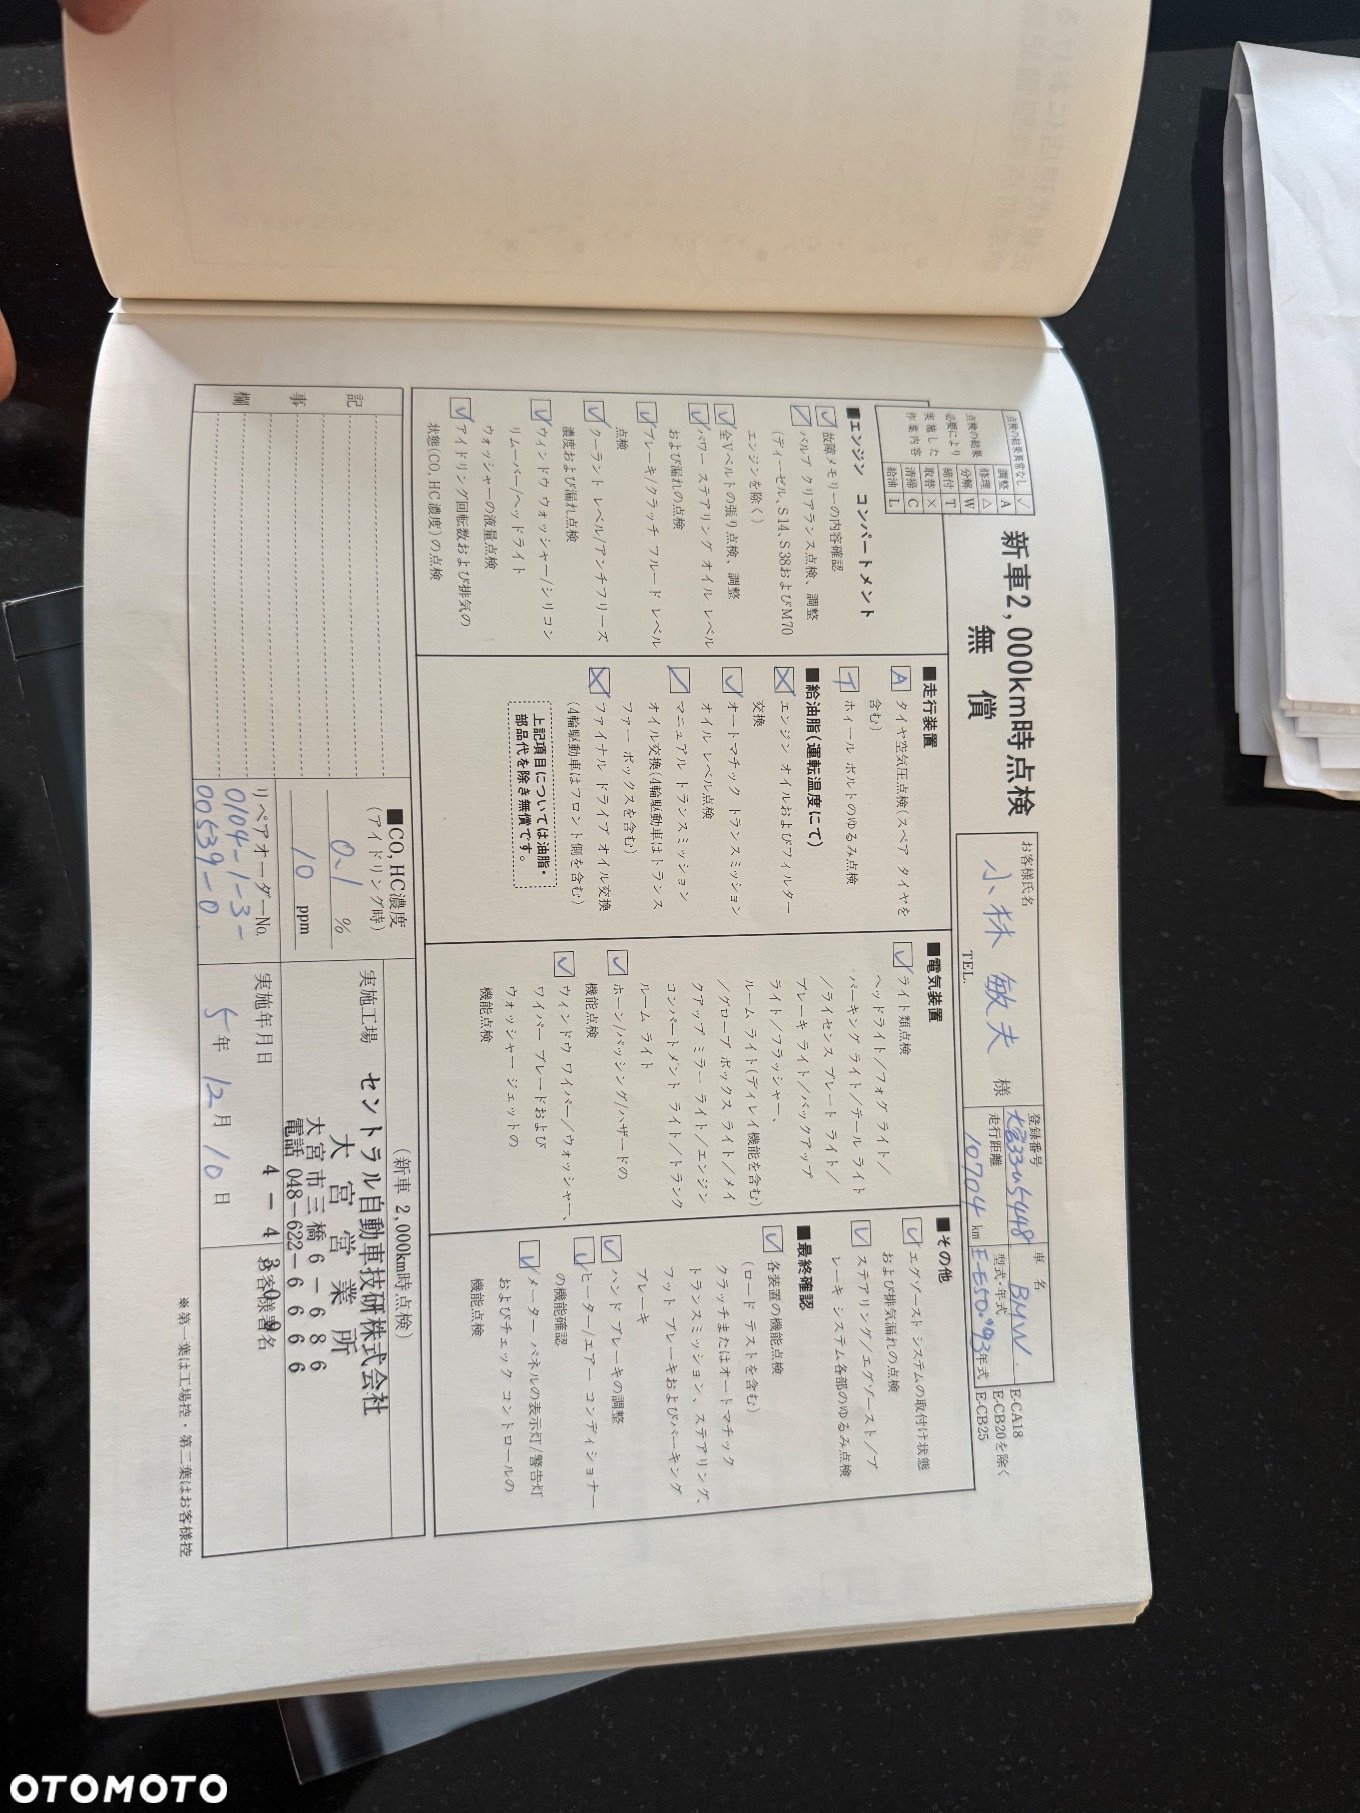 新車2,000km時点検
無償
点検の結果異常なし ✓
点検の結果
必要により
実施した
作業内容
調整 A
修理 △
分解 W
締付 T
取替 ×
清掃 C
給油 L
お客様氏名
小林 敏夫 様
TEL.
登録番号
大宮33 5448
走行距離
10704 km
車名
BMW
型式・年式
E-E50 '93年式
E-CA18
E-CB20を除く
E-CB25
■エンジン コンパートメント
✓ 故障メモリーの内容確認
バルブ クリアランス点検、調整
(ディーゼル、S14、S38およびM70
エンジンを除く)
✓ 全Vベルトの張り点検、調整
✓ パワー ステアリング オイル レベル
および漏れの点検
✓ ブレーキ/クラッチ フルード レベル
点検
✓ クーラント レベル/アンチフリーズ
濃度および漏れ点検
✓ ウィンドウ ウォッシャー/シリコン
リムーバー/ヘッドライト
ウォッシャーの液量点検
✓ アイドリング回転数および排気の
状態(CO, HC濃度)の点検
■走行装置
A タイヤ空気圧点検(スペア タイヤを
含む)
T ホィール ボルトのゆるみ点検
■給油脂(運転温度にて)
× エンジン オイルおよびフィルター
交換
✓ オートマチック トランスミッション
オイル レベル点検
マニュアル トランスミッション
オイル交換(4輪駆動車はトランス
ファー ボックスを含む)
× ファイナル ドライブ オイル交換
(4輪駆動車はフロント側を含む)
上記項目については油脂・
部品代を除き無償です。
■電気装置
✓ ライト類点検
ヘッドライト/フォグ ライト/
パーキング ライト/テール ライト
/ライセンス プレート ライト/
ブレーキ ライト/バックアップ
ライト/フラッシャー、
ルーム ライト(ディレイ機能を含む)
/グローブ ボックス ライト/メイ
クアップ ミラー ライト/エンジン
コンパートメント ライト/トランク
ルーム ライト
✓ ホーン/パッシング/ハザードの
機能点検
✓ ウィンドウ ワイパー/ウォッシャー、
ワイパー ブレードおよび
ウォッシャー ジェットの
機能点検
■その他
✓ エグゾースト システムの取付け状態
および排気漏れの点検
✓ ステアリング/エグゾースト/ブ
レーキ システム各部のゆるみ点検
■最終確認
✓ 各装置の機能点検
(ロード テストを含む)
クラッチまたはオートマチック
トランスミッション、ステアリング、
フット ブレーキおよびパーキング
ブレーキ
✓ ハンド ブレーキの調整
✓ ヒーター/エアー コンディショナー
の機能確認
✓ メーター パネルの表示灯/警告灯
およびチェック コントロールの
機能点検
記事欄
■CO, HC濃度
(アイドリング時)
0.1 %
10 ppm
リペアオーダーNo.
0104-1-3-
00539-0
(新車 2,000km時点検)
実施工場
セントラル自動車技研株式会社
大宮営業所
大宮市三橋6-686
電話 048-622-6666
実施年月日
5年 12月 10日
お客様署名
※第一葉は工場控・第二葉はお客様控
OTOMOTO